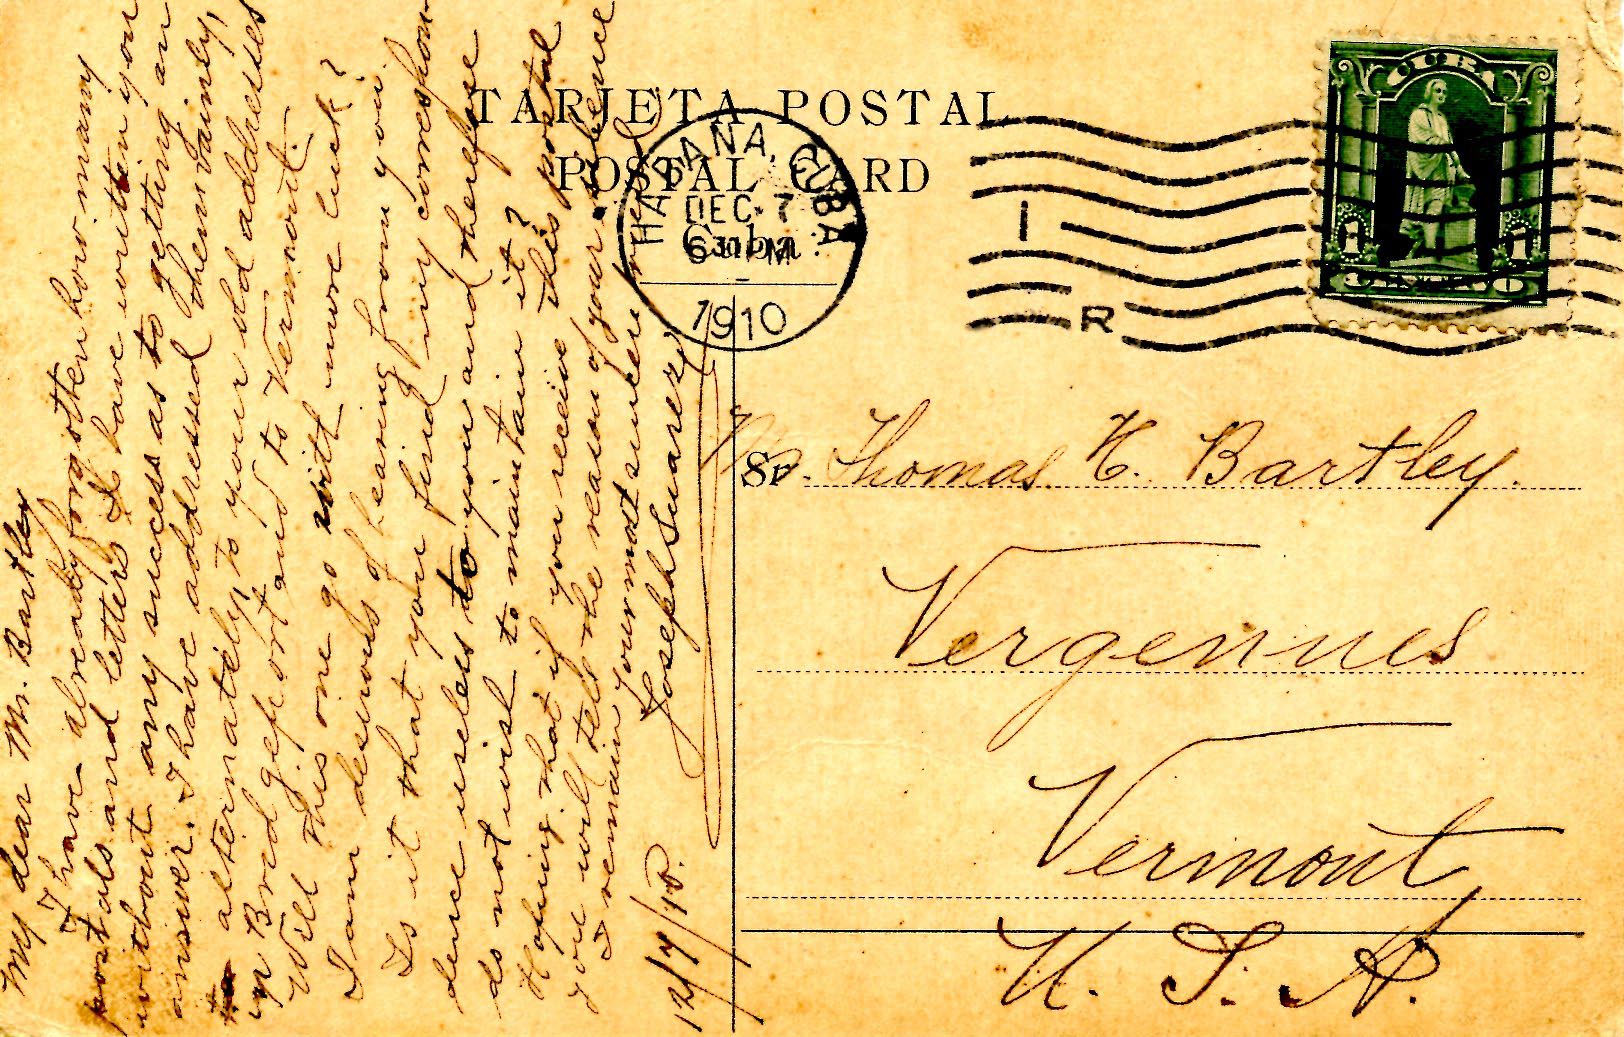 My dear Mr. Bartley
I have already forgotten how many
postals and letters I have written you
without any success as to getting an
answer. I have addressed them vainly,
alternately, to your old addresses
in Bridgeport and to Vermont.
Will this one go with more luck?
I am desirous of hearing from you.
Is it that you find my correspon-
dence useless to you and therefore
do not wish to maintain it?
Hoping that if you receive this postal
you will tell the reason of your silence
I remain your most sincere friend
Joseph Suarez
12/7/10.
TARJETA POSTAL
POSTAL CARD
Cuba
HABANA, CUBA
DEC 7
630 PM
1910
I
R
CUBA
1 1
CENTAVO
Sr. Thomas H. Bartley.
Vergennes
Vermont,
U. S. A.